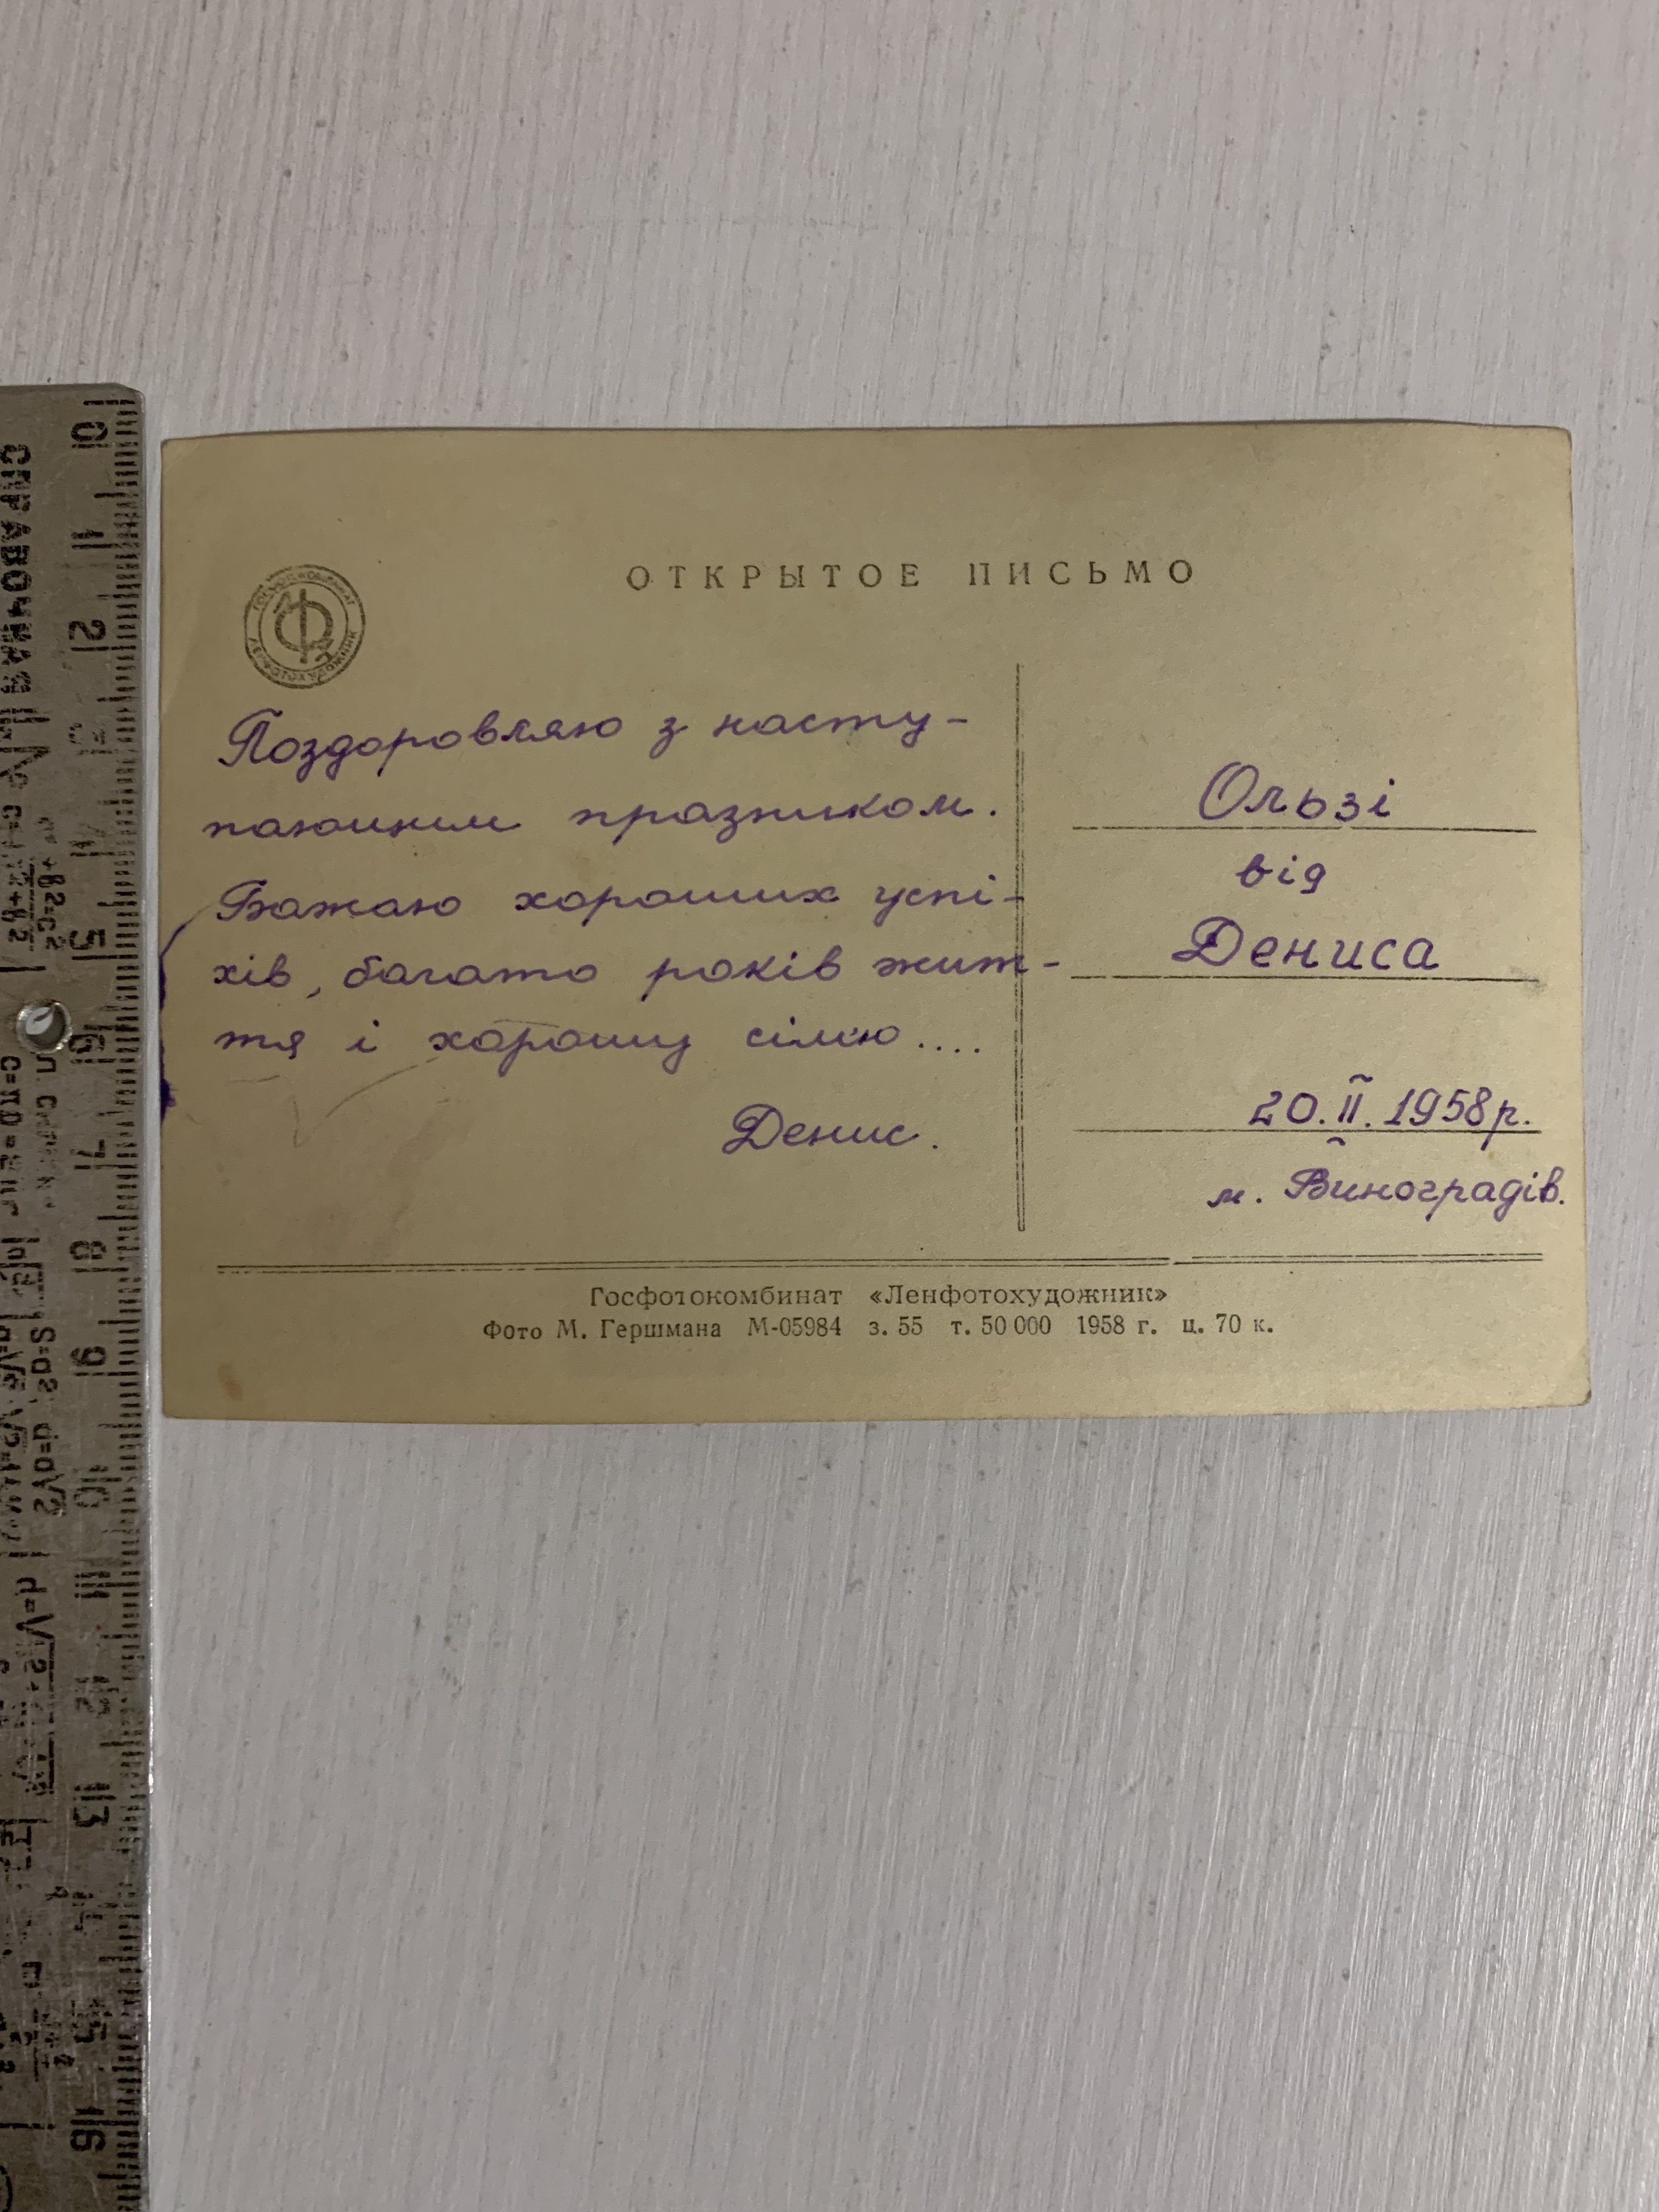 ОТКРЫТОЕ ПИСЬМО
Поздоровляю з насту-
паючим празником.
Бажаю хороших успі-
хів, багато років жит-
тя і хорошу сімю....
Денис.
Ользі
від
Дениса
20.II.1958р.
м. Виноградів.
Госфотокомбинат «Ленфотохудожник»
Фото М. Гершмана М-05984 з. 55 т. 50 000 1958 г. ц. 70 к.
0
1
2
3
4
5
6
7
8
9
10
11
12
13
14
15
16